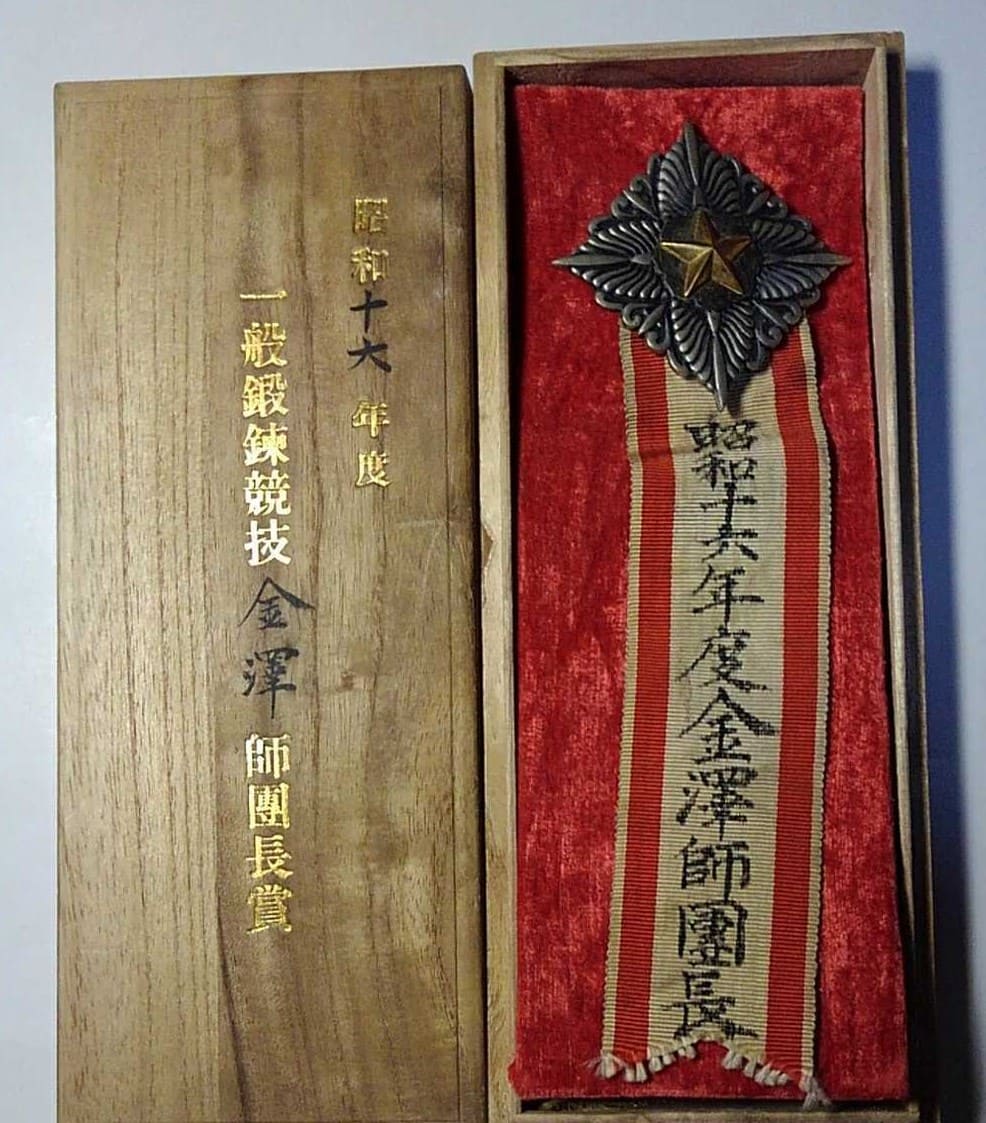 昭和十六年度
一般鍛鍊競技金澤師團長賞
昭和十六年度金澤師團長